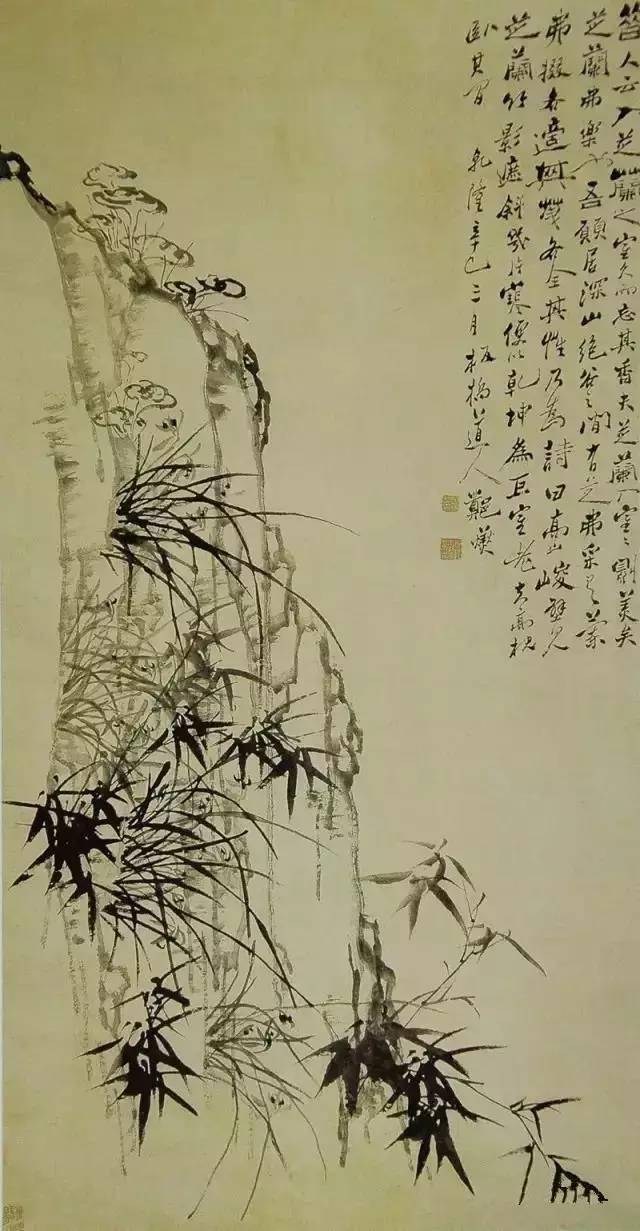 昔人云入芝蘭之室久而忘其香夫芝蘭入室〻則美矣
芝蘭弗樂也吾願居深山絕谷之間有芝弗采有蘭
弗掇各適其天各全其性乃為詩曰高山峻壁見
芝蘭竹影遮斜幾片寒便以乾坤為巨室老夫高枕
臥其間 乾隆辛巳三月板橋道人鄭燮